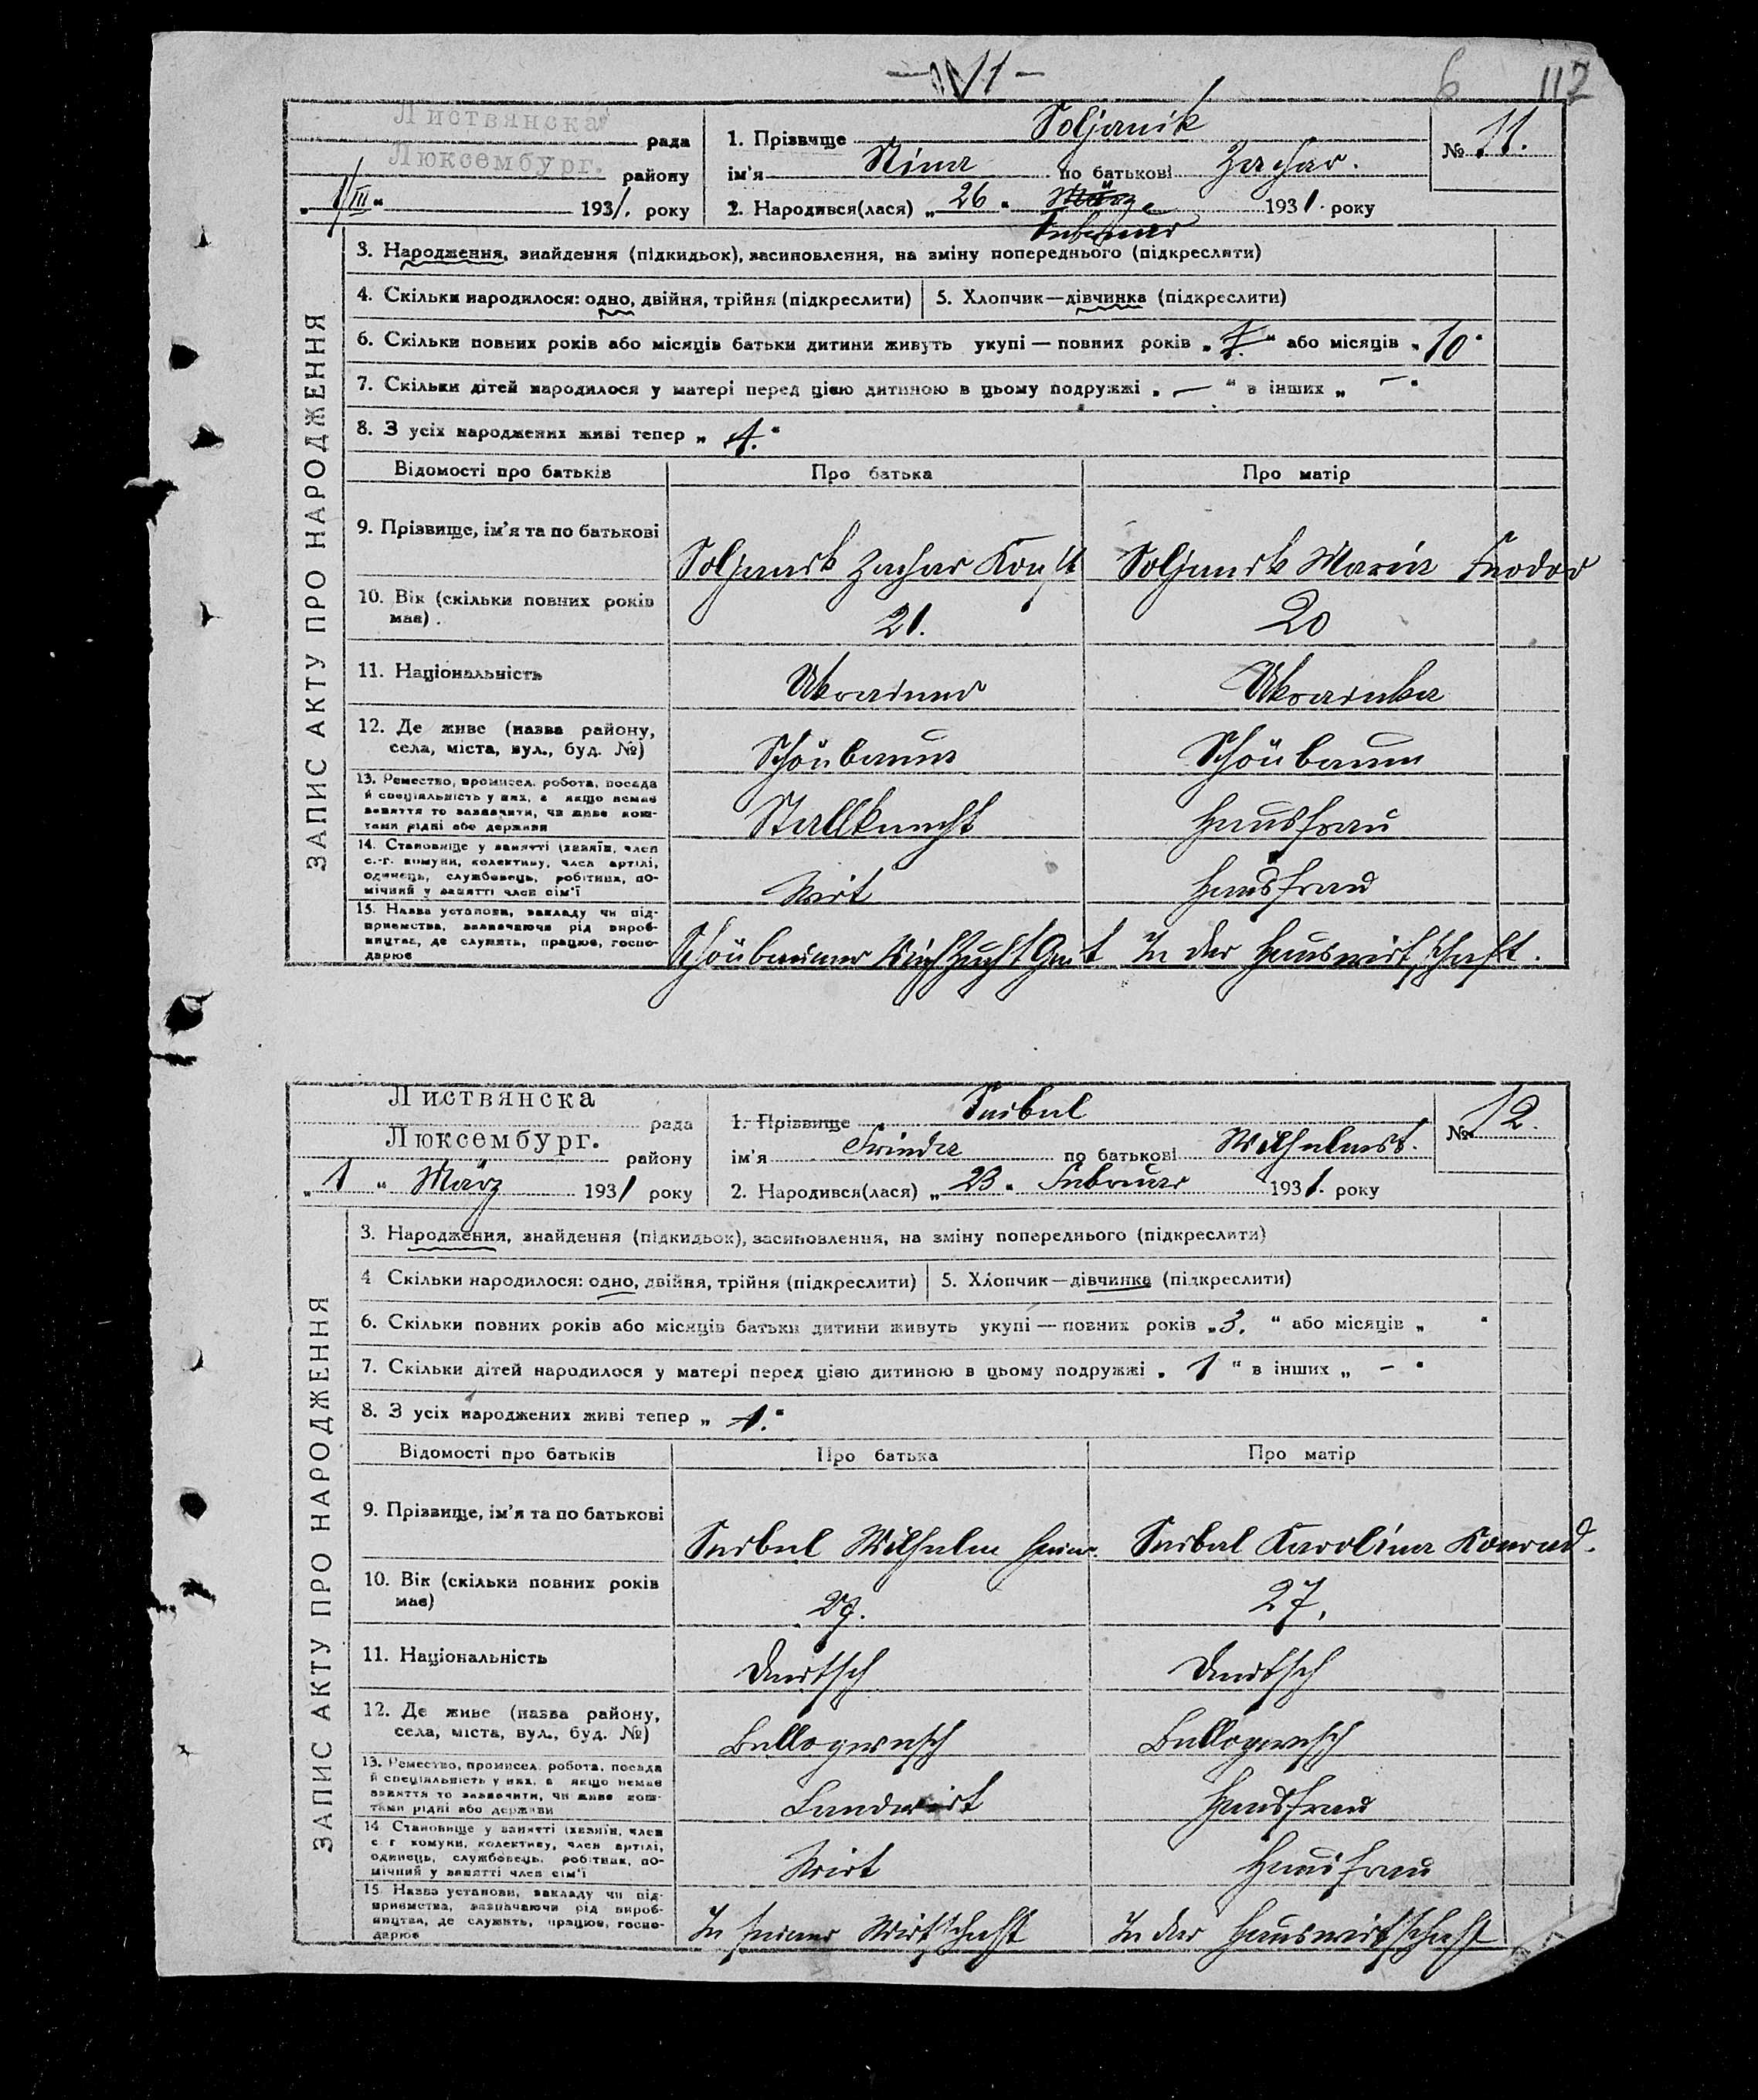 11
6 112
Листвянска рада
Люксембург. району
„1/III“ 1931. року
1. Прізвище Soljanik
ім'я Nina по батькові Zachar.
2. Народився(лася) „26“ März Februar 1931. року
№ 11.
ЗАПИС АКТУ ПРО НАРОДЖЕННЯ
3. Народження, знайдення (підкидьок), засиновлення, на зміну попереднього (підкреслити)
4. Скільки народилося: одно, двійня, трійня (підкреслити) 5. Хлопчик—дівчинка (підкреслити)
6. Скільки повних років або місяців батьки дитини живуть укупі — повних років „1.“ або місяців „10“
7. Скільки дітей народилося у матері перед цією дитиною в цьому подружжі „—“ в інших „—“
8. З усіх народжених живі тепер „1.“
Відомості про батьків Про батька Про матір
9. Прізвище, ім'я та по батькові Soljanik Zachar Konst Soljanik Maria Feodor
10. Вік (скільки повних років має). 21. 20
11. Національність Ukrainer Ukrainka
12. Де живе (назва району, села, міста, вул., буд. №) Schönbaum Schönbaum
13. Ремество, промисел, робота, посада й спеціяльність у них, а якщо немає заняття то зазначити, чи живе коштами рідні або держави Stallknecht Hausfrau
14. Становище у занятті (хазяїн, член с.-г. комуни, колективу, член артілі, одинець, службовець, робітник, помічний у занятті член сім'ї Wirt Hausfrau
15. Назва установи, закладу чи підприємства, зазначаючи рід виробництва, де служить, працює, господарює Schönbaumer Viehzucht Gen't In der Hauswirtschaft.
Листвянска рада
Люксембург. району
„1“ März 1931 року
1. Прізвище Seibel
ім'я Frieda по батькові Wilhelmst.
2. Народився(лася) „23“ Februar 1931. року
№ 12.
ЗАПИС АКТУ ПРО НАРОДЖЕННЯ
3. Народження, знайдення (підкидьок), засиновлення, на зміну попереднього (підкреслити)
4 Скільки народилося: одно, двійня, трійня (підкреслити) 5. Хлопчик—дівчинка (підкреслити)
6. Скільки повних років або місяців батьки дитини живуть укупі — повних років „3.“ або місяців „ “
7. Скільки дітей народилося у матері перед цією дитиною в цьому подружжі „1“ в інших „—“
8. З усіх народжених живі тепер „1.“
Відомості про батьків Про батька Про матір
9. Прізвище, ім'я та по батькові Seibel Wilhelm Heinr. Seibel Karolina Konrad.
10. Вік (скільки повних років має) 27. 27.
11. Національність Deutsch Deutsch
12. Де живе (назва району, села, міста, вул., буд. №) Bellogewesch Bellogewesch
13. Ремество, промисел, робота, посада й спеціяльність у них, а якщо немає заняття то зазначити, чи живе коштами рідні або держави Landwirt Hausfrau
14 Становище у занятті (хазяїн, член с г комуни, колективу, член артілі, одинець, службовець, робітник, помічний у занятті член сім'ї Wirt Hausfrau
15 Назва установи, закладу чи підприємства, зазначаючи рід виробництва, де служить, працює, господарює In seiner Wirtschaft In der Hauswirtschaft